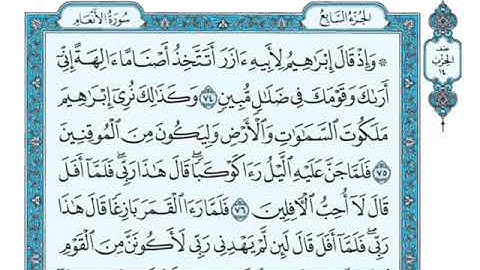 سُورَةُ الأَنْعَامِ
الجُزءُ السَّابِعُ
نصف
الحزب
١٤
۞ وَإِذْ قَالَ إِبْرَٰهِيمُ لِأَبِيهِ ءَازَرَ أَتَتَّخِذُ أَصْنَامًا ءَالِهَةً إِنِّيٓ
أَرَىٰكَ وَقَوْمَكَ فِي ضَلَٰلٖ مُّبِينٖ ٧٤ وَكَذَٰلِكَ نُرِيٓ إِبْرَٰهِيمَ
مَلَكُوتَ ٱلسَّمَٰوَٰتِ وَٱلْأَرْضِ وَلِيَكُونَ مِنَ ٱلْمُوقِنِينَ
٧٥ فَلَمَّا جَنَّ عَلَيْهِ ٱلَّيْلُ رَءَا كَوْكَبٗا قَالَ هَٰذَا رَبِّي فَلَمَّآ أَفَلَ
قَالَ لَآ أُحِبُّ ٱلْأٓفِلِينَ ٧٦ فَلَمَّا رَءَا ٱلْقَمَرَ بَازِغٗا قَالَ هَٰذَا
رَبِّي فَلَمَّآ أَفَلَ قَالَ لَئِن لَّمْ يَهْدِنِي رَبِّي لَأَكُونَنَّ مِنَ ٱلْقَوْمِ